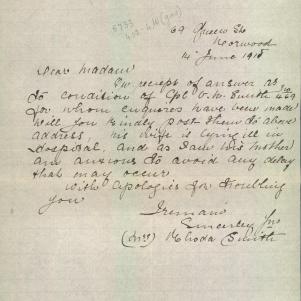 69 Queen St
Norwood
4 June 1918
Dear Madam
In receipt of answer as
to condition of Cpl G. W. Smith
for whom enquiries have been made
will you kindly post them to above
address, his wife is lying ill in
Hospital, and as I am his mother
am anxious to avoid any delay
that may occur.
With apologies for troubling
you
I remain
Sincerely Yrs
(Mrs) Rhoda Smith